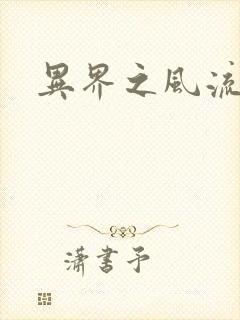 異界之風流
瀟書予